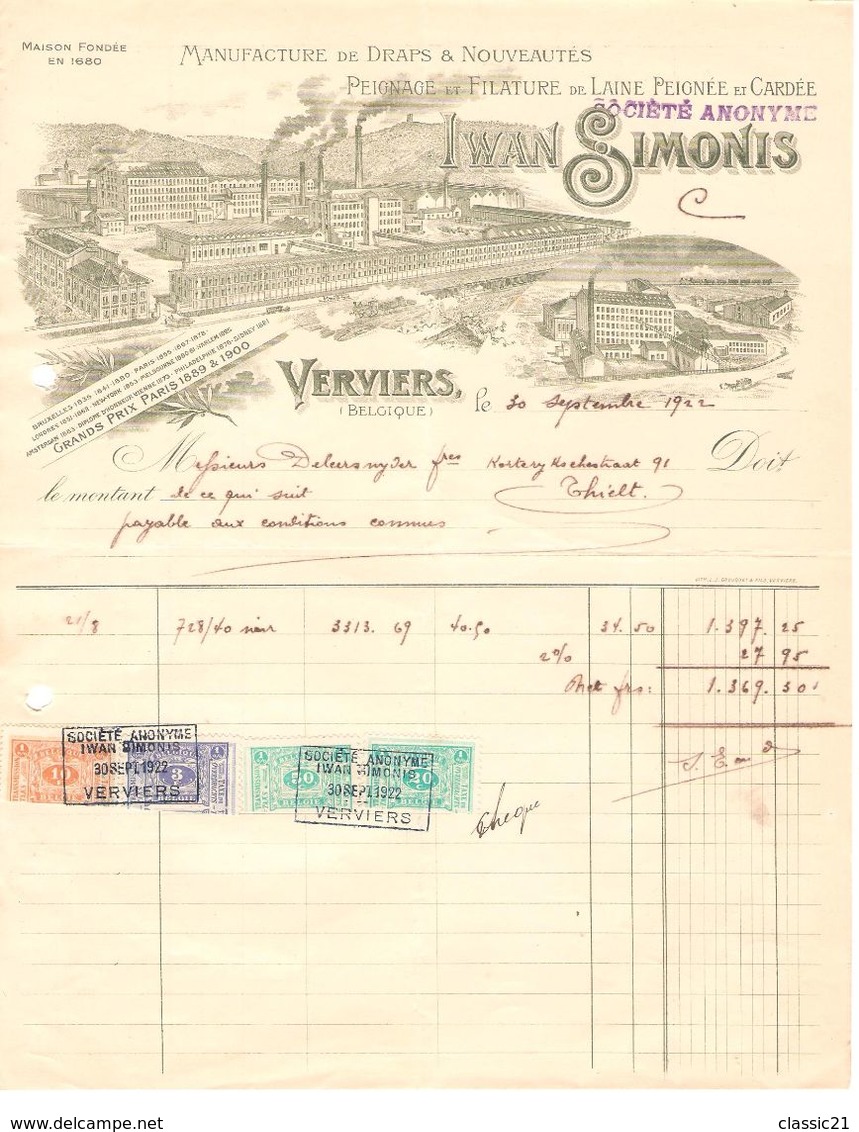 MAISON FONDÉE
EN 1680
MANUFACTURE DE DRAPS & NOUVEAUTÉS
PEIGNAGE ET FILATURE DE LAINE PEIGNÉE ET CARDÉE
SOCIÉTÉ ANONYME
IWAN SIMONIS
C
BRUXELLES 1835·1841·1880·PARIS·1855·1867·1878·
LONDRES 1851·1862·NEW-YORK 1853·MELBOURNE 1880·81·HARLEM 1861
AMSTERDAM 1883·DIPLOME D'HONNEUR VIENNE 1873·PHILADELPHIE 1876·SIDNEY 1881
GRANDS PRIX PARIS 1889 & 1900
VERVIERS,
(BELGIQUE)
le 30 Septembre 1922
Messieurs Deleersnyder fres Kortrykschestraat 91 Doit
le montant de ce qui suit Thielt.
payable aux conditions connues
21/8 728/40 noir 3313. 69 40.50 34. 50 1.397. 25
2% 27 95
Net frs: 1.369. 30
SOCIÉTÉ ANONYME
IWAN SIMONIS
30 SEPT. 1922
VERVIERS
SOCIÉTÉ ANONYME
IWAN SIMONIS
30 SEPT. 1922
VERVIERS
10
3
50
20
BELGIË
BELGIË
BELGIË
BELGIË
Cheque
classic21